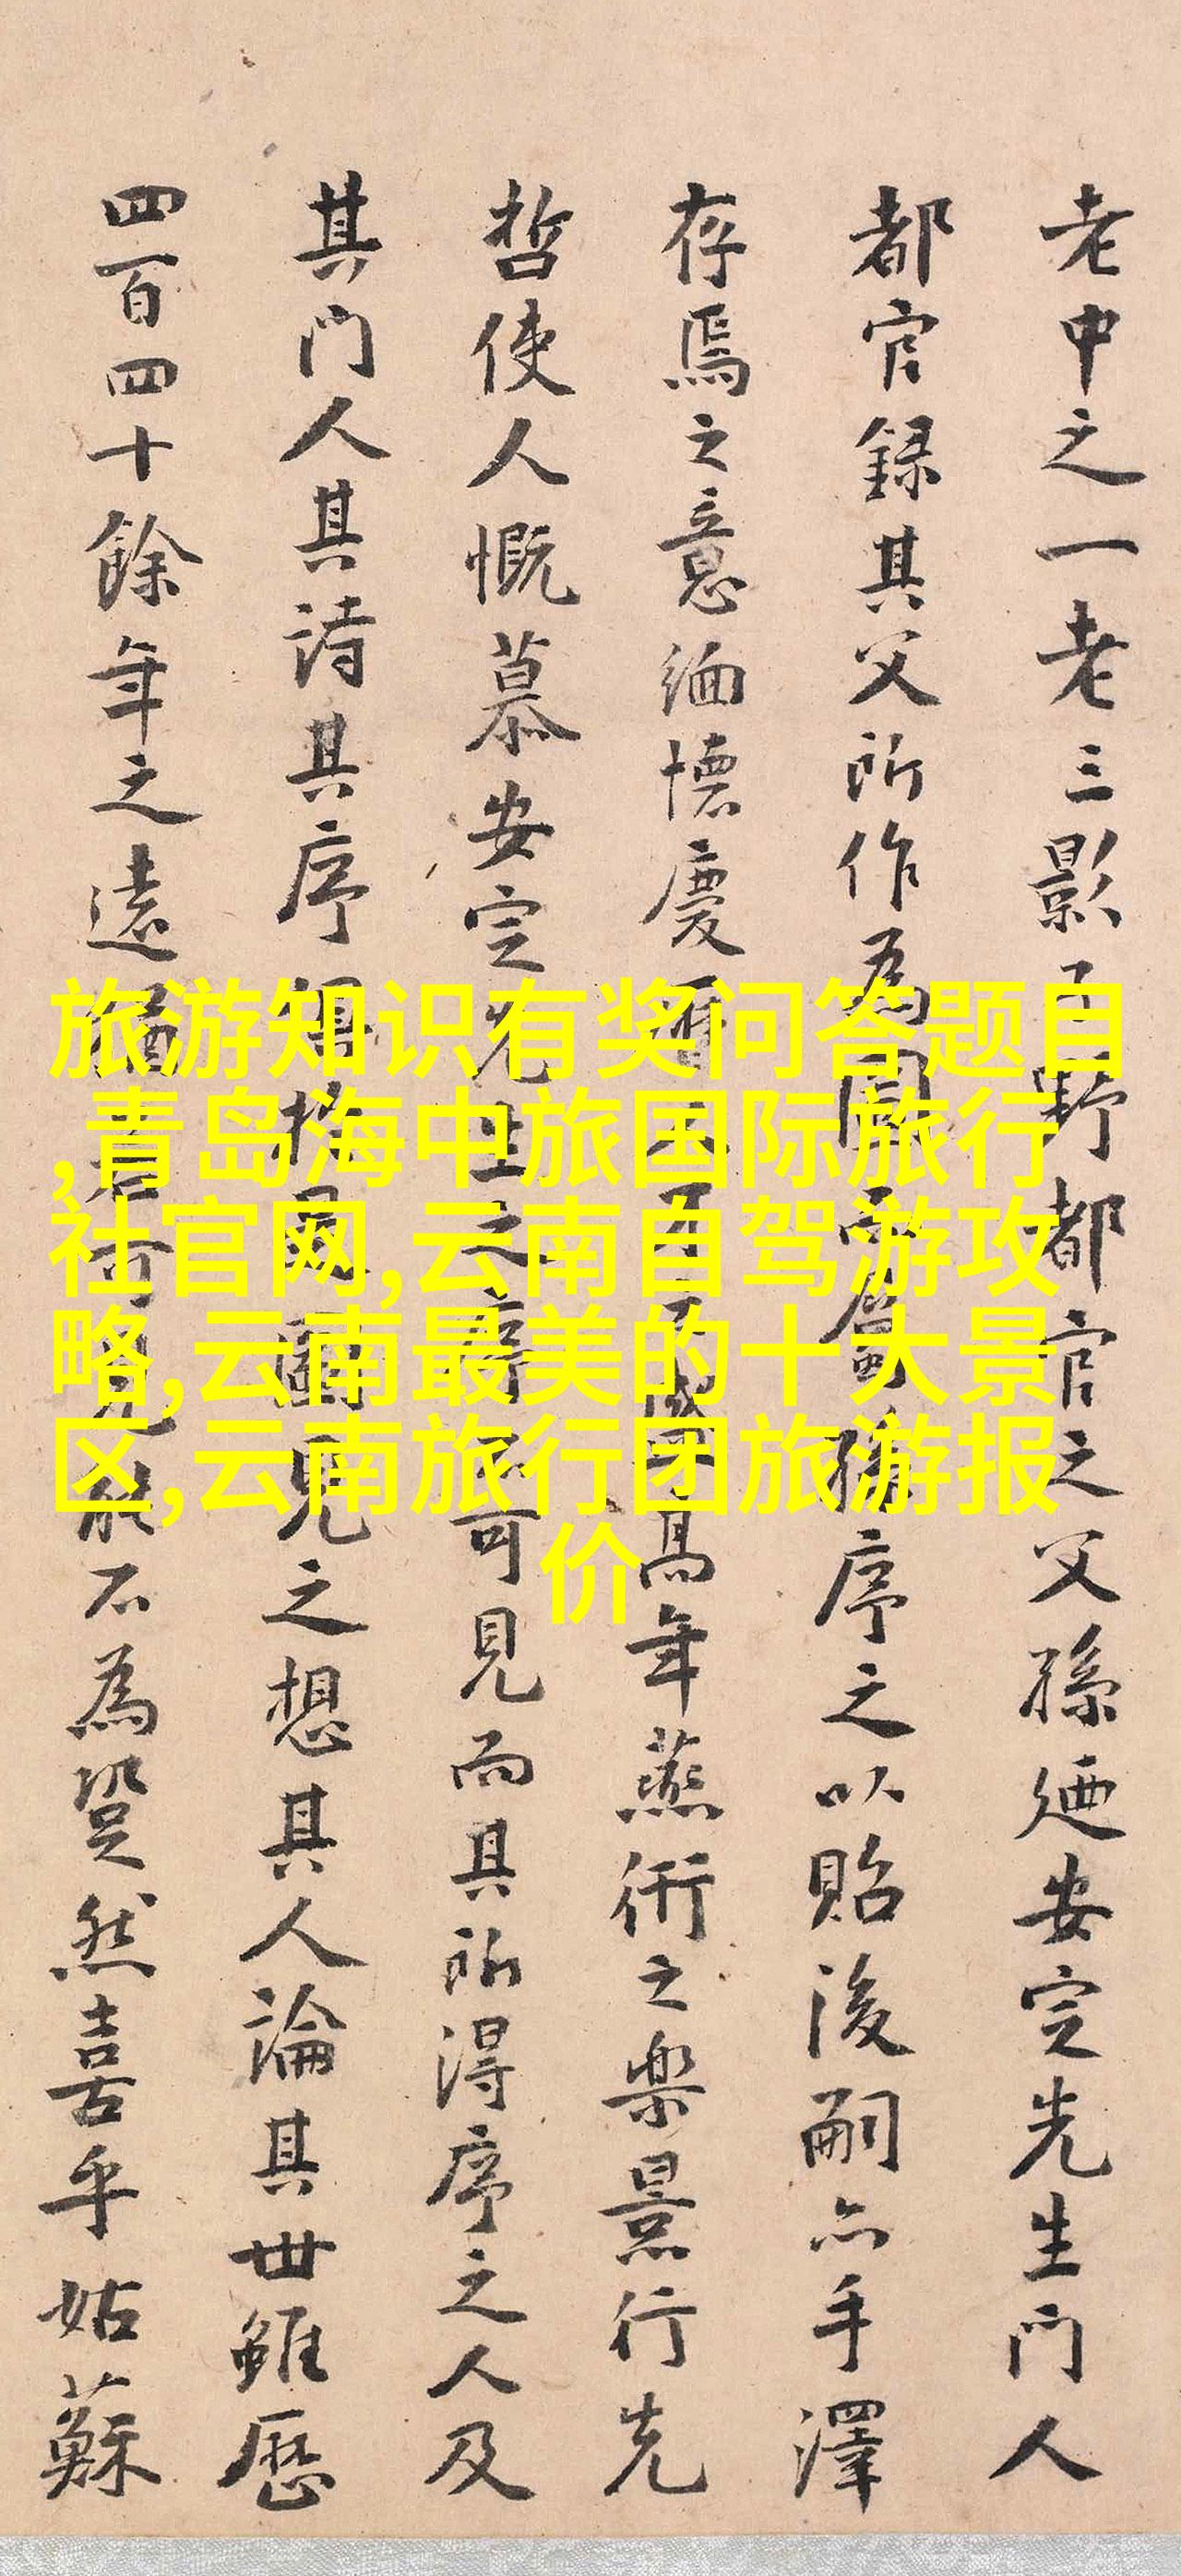 老中之一老三影子野都官之父孫廼安定先生門人
都官錄其父所作為圖而屬孫序之以貽後嗣亦手澤
存焉之意緬懷慶曆高年燕衎之樂景行先
哲使人慨慕安定先生之序可見而其所得序之人及
其門人其詩其序見之想其人論其世雖歷
四百四十餘年之遠猶若可見能不為跫然喜乎姑蘇
旅游知识有奖问答题目
,青岛海中旅国际旅行
社官网,云南自驾游攻
略,云南最美的十大景
区,云南旅行团旅游报
价